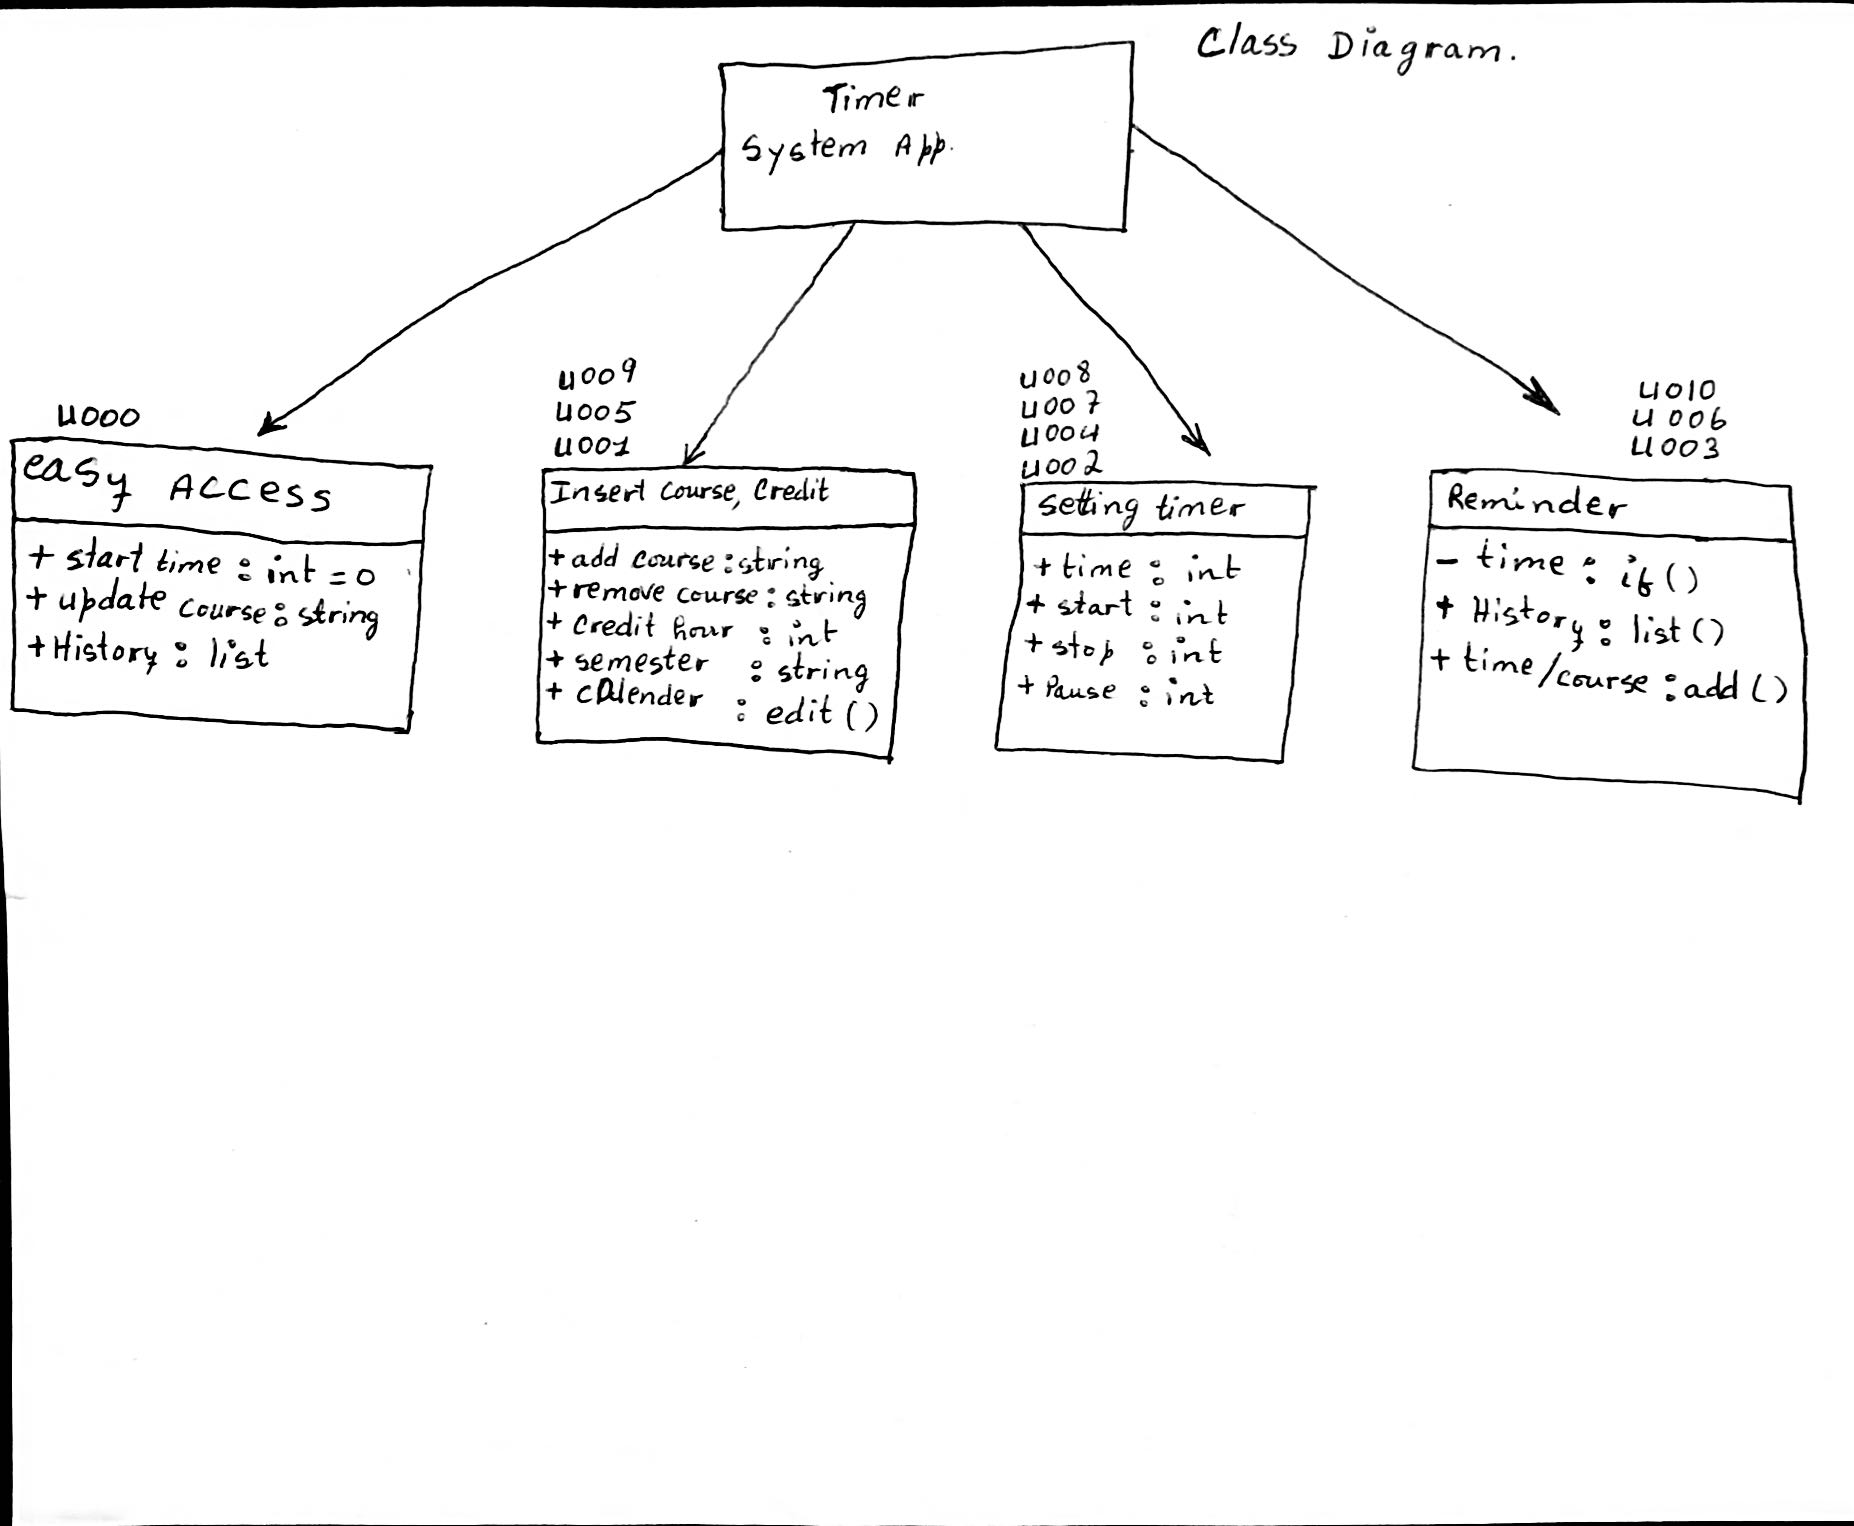 Class Diagram.
Timer
System App.
U000
easy Access
+ start time : int = 0
+ update course : string
+ History : list
U009
U005
U001
Insert course, Credit
+ add course : string
+ remove course : string
+ Credit hour : int
+ semester : string
+ calender : edit ()
U008
U007
U004
U002
Setting timer
+ time : int
+ start : int
+ stop : int
+ Pause : int
U010
U006
U003
Reminder
- time : if ()
+ History : list ()
+ time/course : add ()